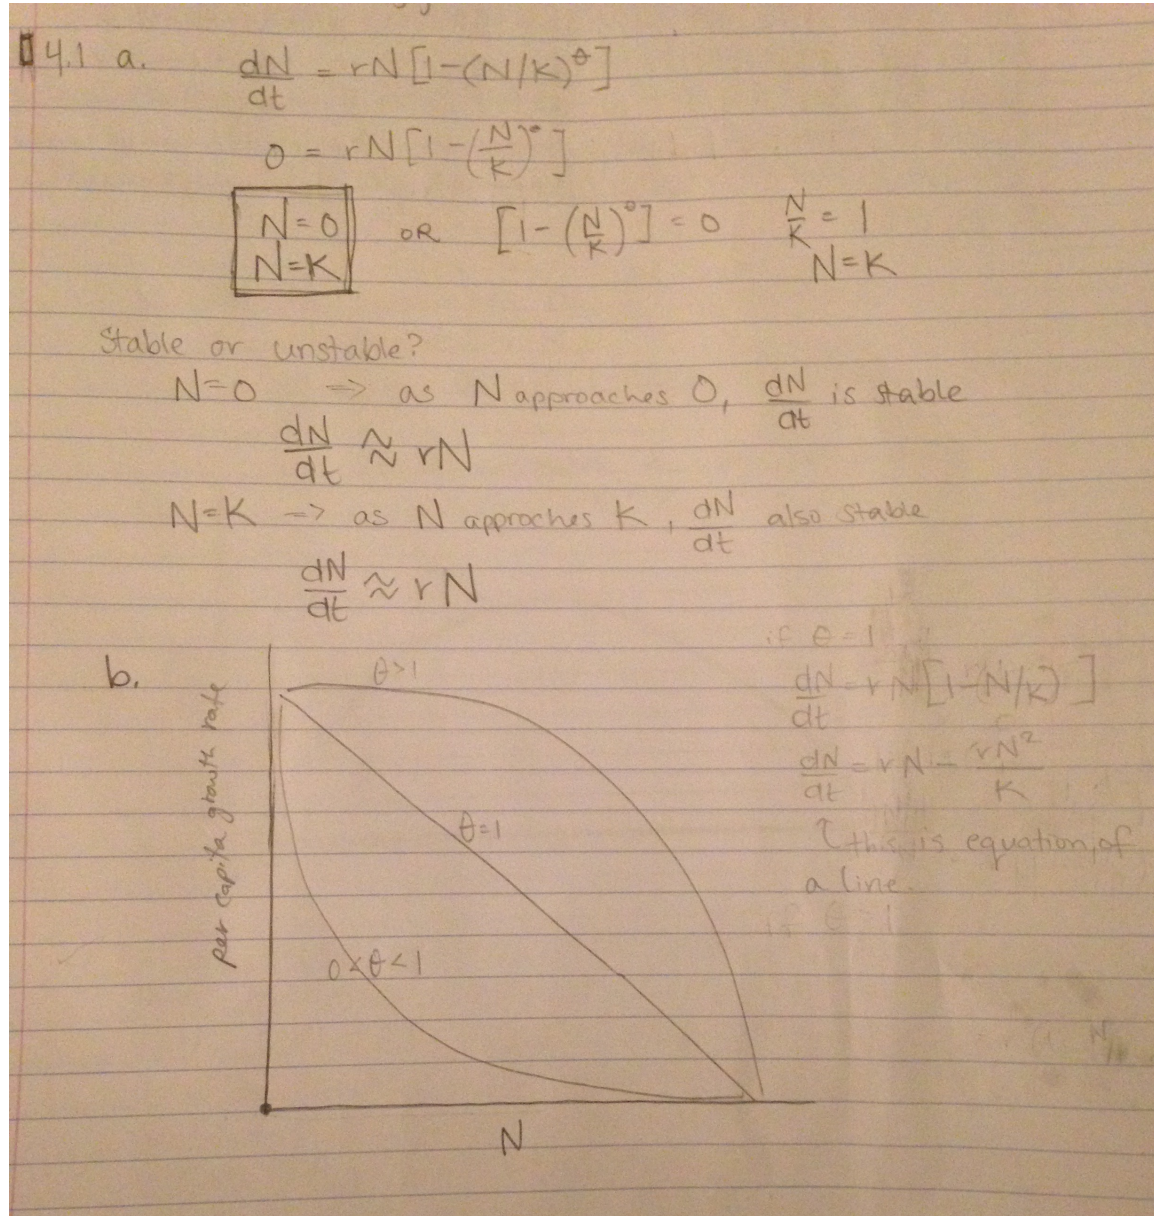 4.1 a. dN/dt = rN[1-(N/K)^θ]
0 = rN[1-(N/K)^θ]
N=0 OR [1-(N/K)^θ] = 0 N/K = 1
N=K N=K
Stable or unstable?
N=0 => as N approaches 0, dN/dt is stable
dN/dt ≈ rN
N=K -> as N approches K, dN/dt also stable
dN/dt ≈ rN
b.
per capita growth rate
θ>1
θ=1
0<θ<1
N
if θ=1
dN/dt = rN[1-(N/K)]
dN/dt = rN - rN²/K
↑ this is equation of
a line.
if θ=1